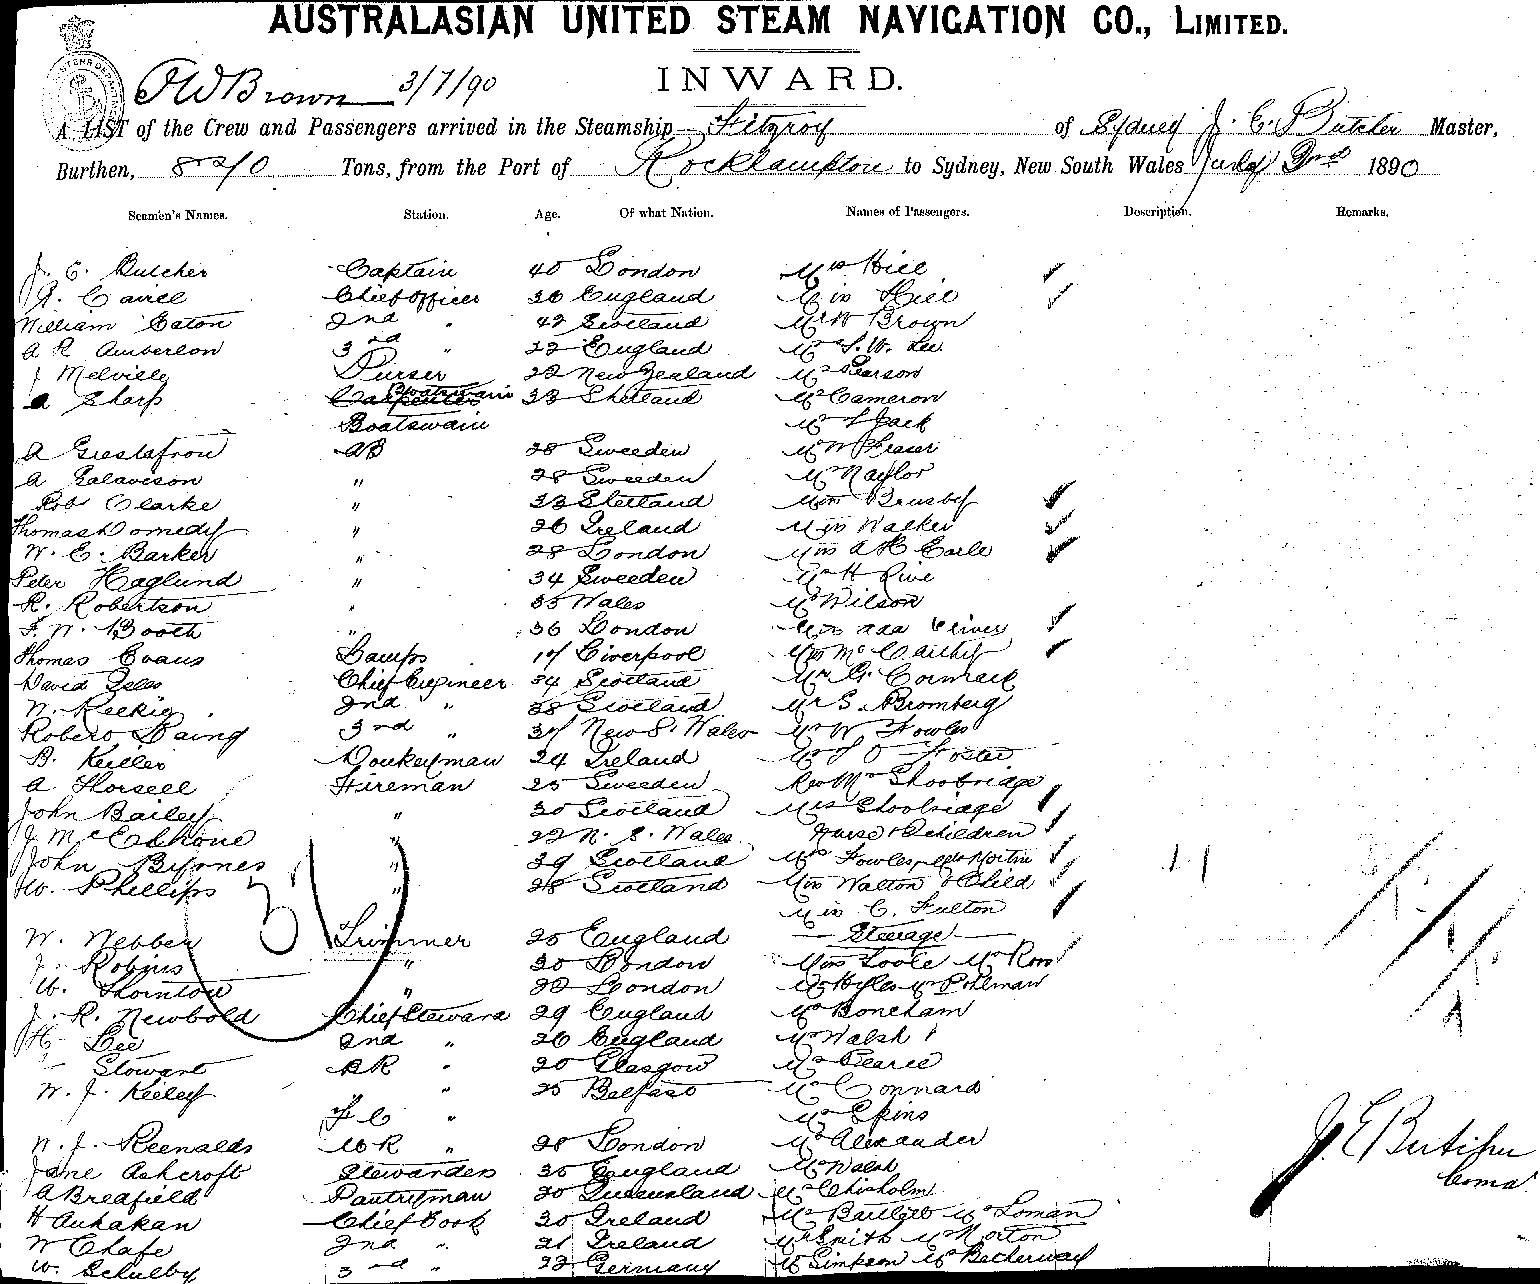 AUSTRALASIAN UNITED STEAM NAVIGATION CO., LIMITED.
INWARD.
J W Brown 3/7/90
A LIST of the Crew and Passengers arrived in the Steamship Fitzroy of Sydney J. C. Butcher Master,
Burthen, 820 Tons, from the Port of Rockhampton to Sydney, New South Wales July 3rd 1890
Seamen's Names. Station. Age. Of what Nation. Names of Passengers. Description. Remarks.
J. C. Butcher Captain 40 London Mrs Hill
Chief Officer 36 England Miss Hill
William Eaton 2nd " 42 Scotland Mr W Brown
A R Amberlon 3rd " 22 England Mr S. W. Lee
J Melville Purser 22 New Zealand Mr Pearson
A Sharp Carpenter Boatswain 33 Shetland Mr Cameron
Boatswain Mr Jack
A Gustafson AB 28 Sweeden Mr W Fraser
A " 28 Sweeden Mr Naylor
Rob Clarke " 33 Shetland Miss
Thomas " 26 Ireland Miss Walker
W. E. Barker " 28 London Miss A H Earle
Peter Haglund " 34 Sweeden Mr H
R. Robertson " 35 Wales Mr Wilson
F. W. Booth " 36 London Miss Ada
Thomas Evans Lamps 17 Liverpool Miss McCarthy
David Isles Chief Engineer 34 Scotland Mr G. Cormack
W. 2nd " 38 Scotland Mr S. Bromberg
Robero Laing 3rd " 37 New S. Wales Mr W Fowles
B. Keiller Donkeyman 24 Ireland Mr Foster
A Horsell Fireman 25 Sweeden Rev Mr Shoobridge
John Bailey " 30 Scotland Mrs Shoobridge
J McElhone " 22 N. S. Wales Nurse & children
John Byrnes " 39 Scotland Mrs Fowles
W. Phillips " 28 Scotland Miss Walton & Child
31
Miss C. Fulton
W. Webber Trimmer 25 England Steerage
J. Robins " 30 London Miss Toole Mr Ross
W. Thornton " 22 London Mr Hyles Mr Pohlman
J. R. Newbold Chief Steward 29 England Mr Boneham
H Lee 2nd " 26 England Mr Walsh
Stewart BR " 20 Glasgow Mr Pearce
W. J. Keiley " 25 Belfast Mr Connard
F C " Mr Ekins
W. J. Reenalds " 28 London Mr Alexander
Jane Ashcroft Stewardess 35 England Mr Walsh
A Bredfield Pantryman 20 Queensland Mr Chisholm
H Auhakan Chief Cook 30 Ireland Mr Bartlett Mr Loman
W Chafe 2nd " 21 Ireland Mr Smith Mr Morton
W. Schulby 3rd " 22 Germany Mr Simpson Mr
J. C. Butcher
Comd